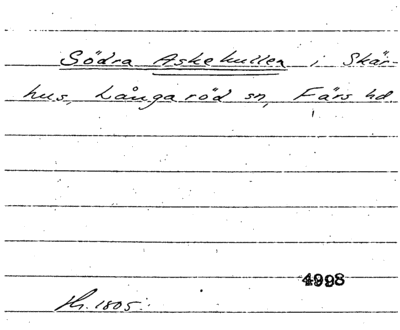 Södra Askekullen i Skär-
hus, Långaröd sn, Färs hd
4998
Hr. 1805.